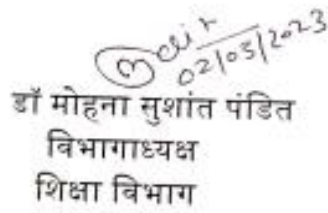 02/05/2023
डॉ मोहना सुशांत पंडित
विभागाध्यक्ष
शिक्षा विभाग